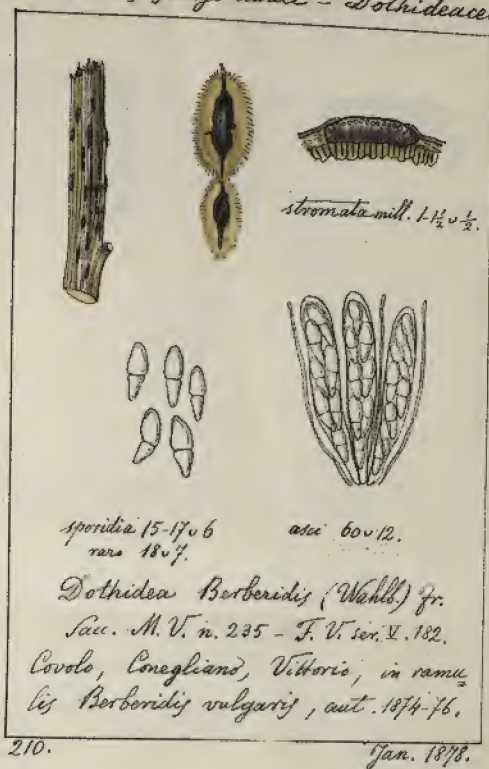 - Dothideace
stromata mill. 1-1½ ʋ ½.
sporidia 15-17 ʋ 6
raro 18 ʋ 7.
asci 60 ʋ 12.
Dothidea Berberidis (Wahlb.) Fr.
Sacc. M. V. n. 235 - F. V. ser. V. 182.
Covolo, Conegliano, Vittorio, in ramu
lis Berberidis vulgaris, aut. 1874-76.
210.
Jan. 1878.